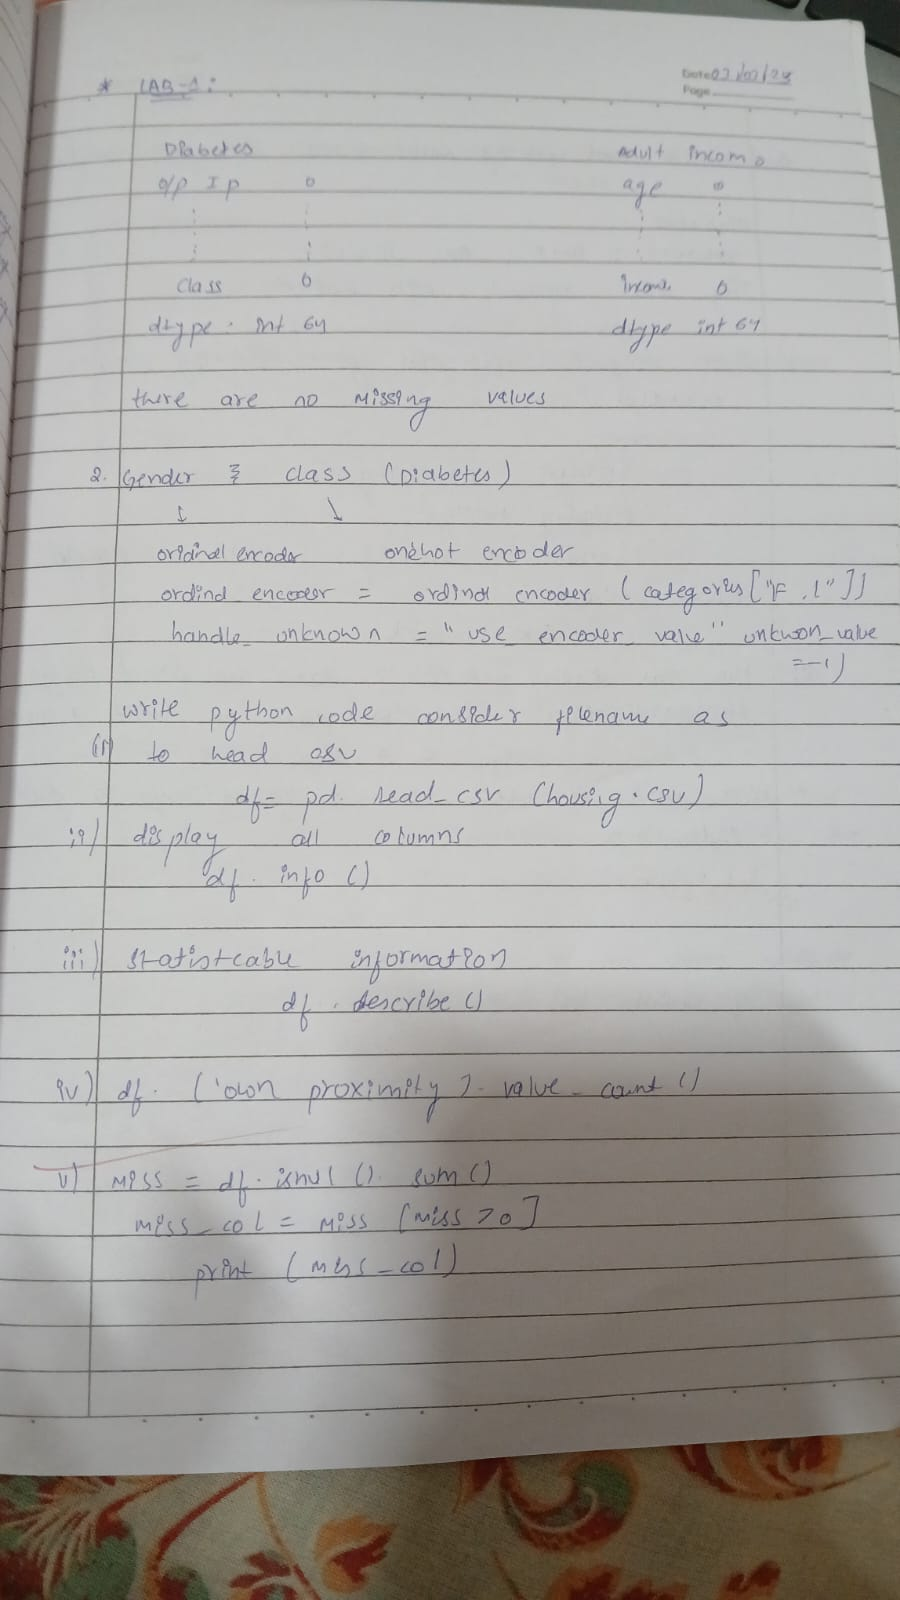 * LAB-1:
Date 03/03/25
Page
Diabetes Adult incom
o/p Ip 0 age 0
class 0 Income 0
dtype. int 64 dtype int 64
there are no missing values
2. Gender & class (Diabetes)
↓ ↓
oridinal encoder onehot encoder
ordinal encoder = ordinal encoder (categories ["F, 1"])
handle_unknown = "use_encoder_value" unkwon_value
=-1)
write python code consider filename as
(i) to head csv
df= pd. read_csv (housing.csv)
ii) display all columns
df. info ()
iii) statisticable information
df. describe ()
iv) df. ('own proximity). value_count ()
v) miss = df. isnul (). sum ()
miss_col = miss [miss >0]
print (miss_col)